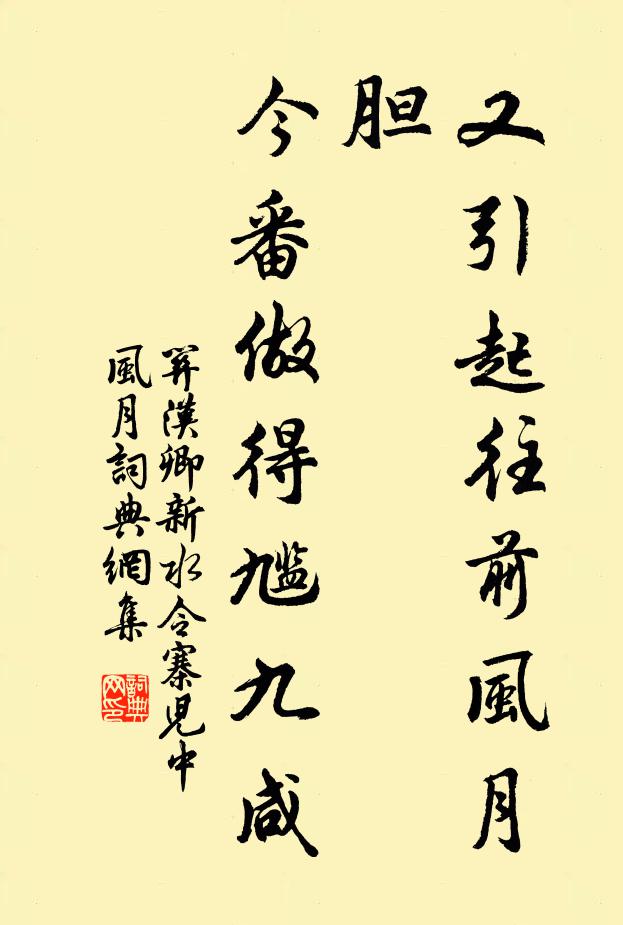 又引起往前風月
胆
今番做得尴九咸
關漢卿新水令寨兒中
風月詞典網集
詞典
网印